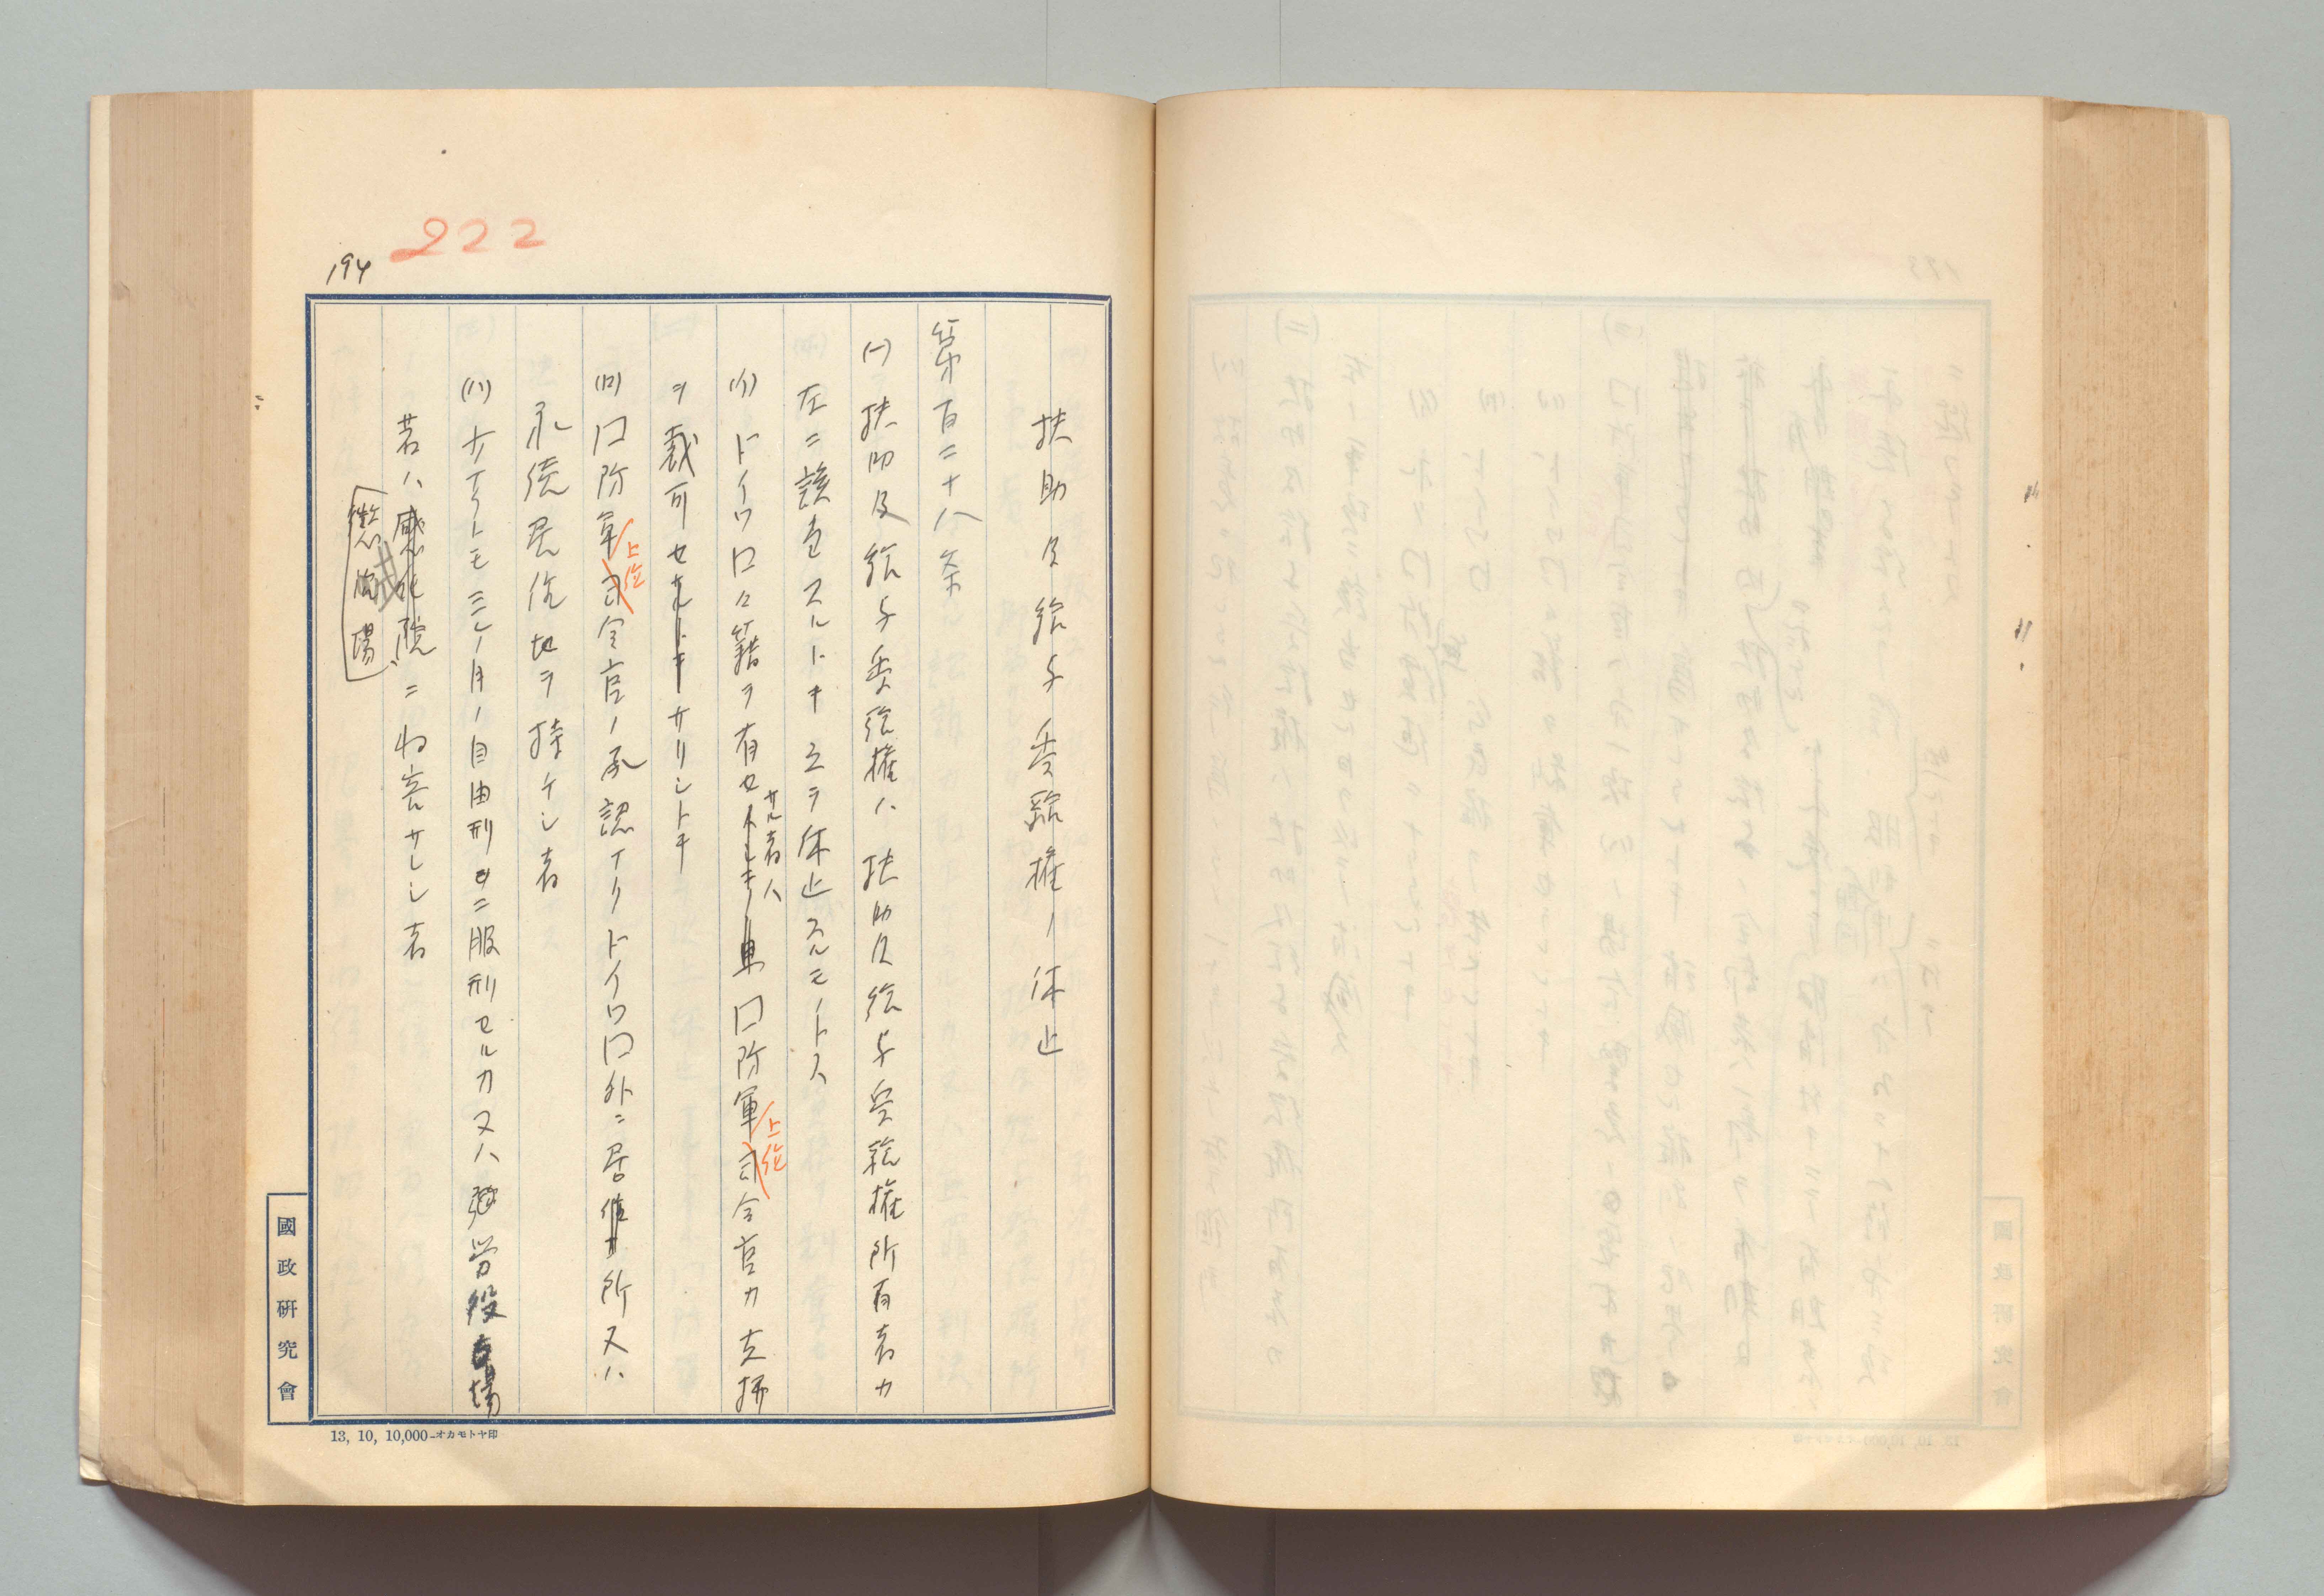 222
194
扶助及給与受給権ノ休止
第百二十八条
(一)扶助及給与受給権ハ扶助及給与受給権所有者カ
左ニ該当スルトキ之ヲ休止スルモノトス
(イ)ドイツ口々籍ヲ有セサル者ハ口防軍上位司令官カ支拂
ヲ裁可セサリシトキ
(ロ)口防軍上位司令官ノ承認ナクドイツ口外ニ居所又ハ
永続居住地ヲ持チシ者
(ハ)少クトモ三ヶ月ノ自由刑ニ服刑セルカ又ハ強労役場
若ハ感化院ニ収容サレシ者
懲治場
國政研究會
13, 10, 10,000―オカモトヤ印